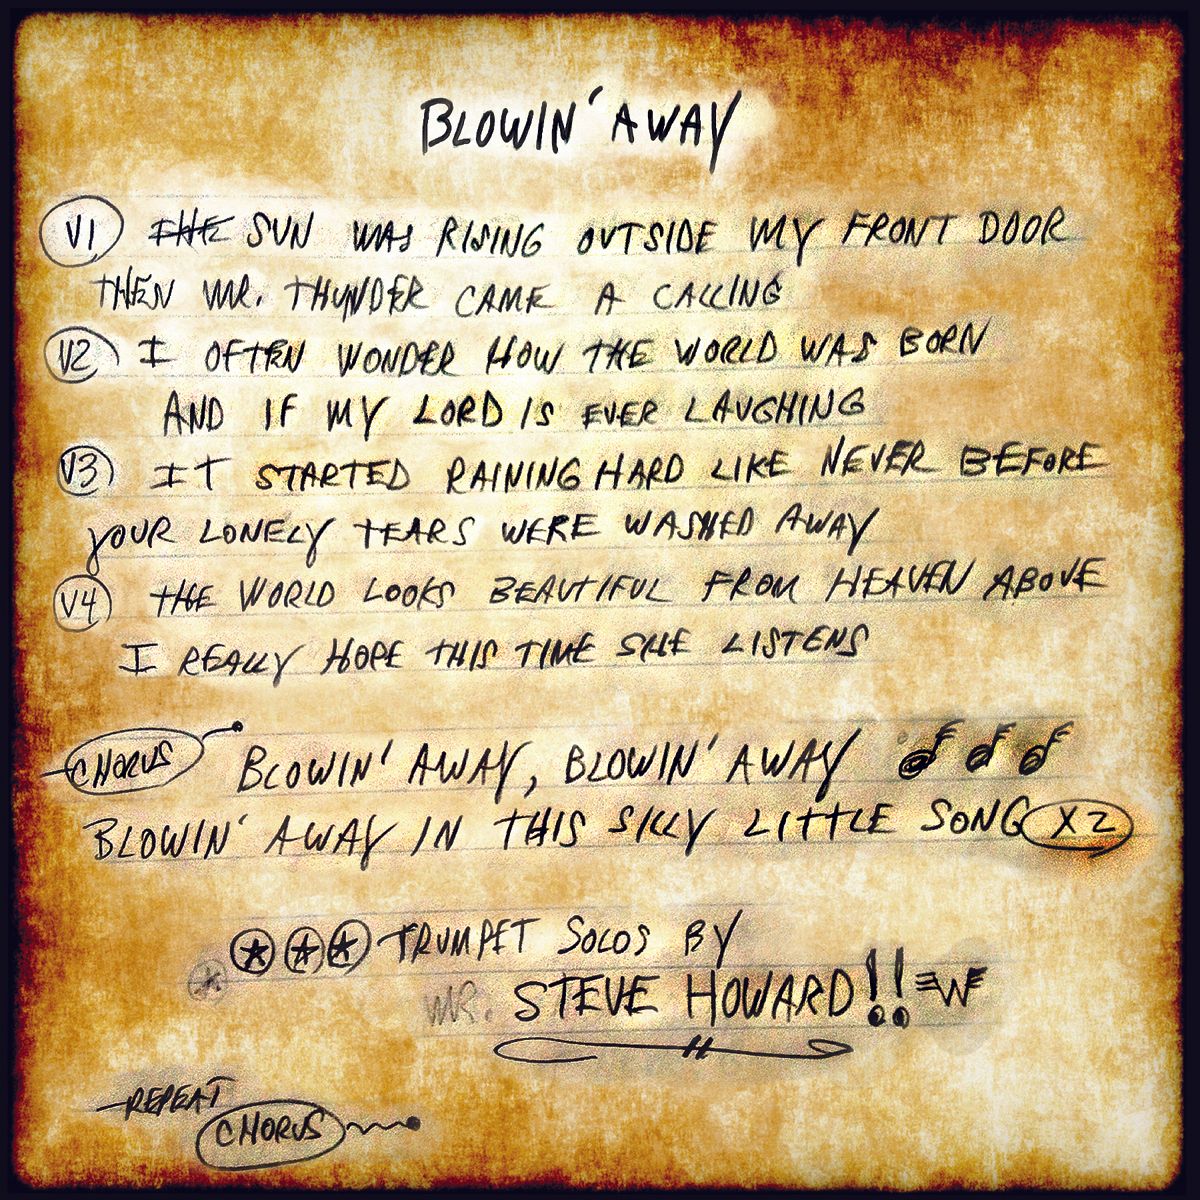 BLOWIN' AWAY
V1 THE SUN WAS RISING OUTSIDE MY FRONT DOOR
THEN MR. THUNDER CAME A CALLING
V2 I OFTEN WONDER HOW THE WORLD WAS BORN
AND IF MY LORD IS EVER LAUGHING
V3 IT STARTED RAINING HARD LIKE NEVER BEFORE
YOUR LONELY TEARS WERE WASHED AWAY
V4 THE WORLD LOOKS BEAUTIFUL FROM HEAVEN ABOVE
I REALLY HOPE THIS TIME SHE LISTENS
CHORUS BLOWIN' AWAY, BLOWIN' AWAY
BLOWIN' AWAY IN THIS SILLY LITTLE SONG X2
TRUMPET SOLOS BY
MR. STEVE HOWARD!!
REPEAT
CHORUS